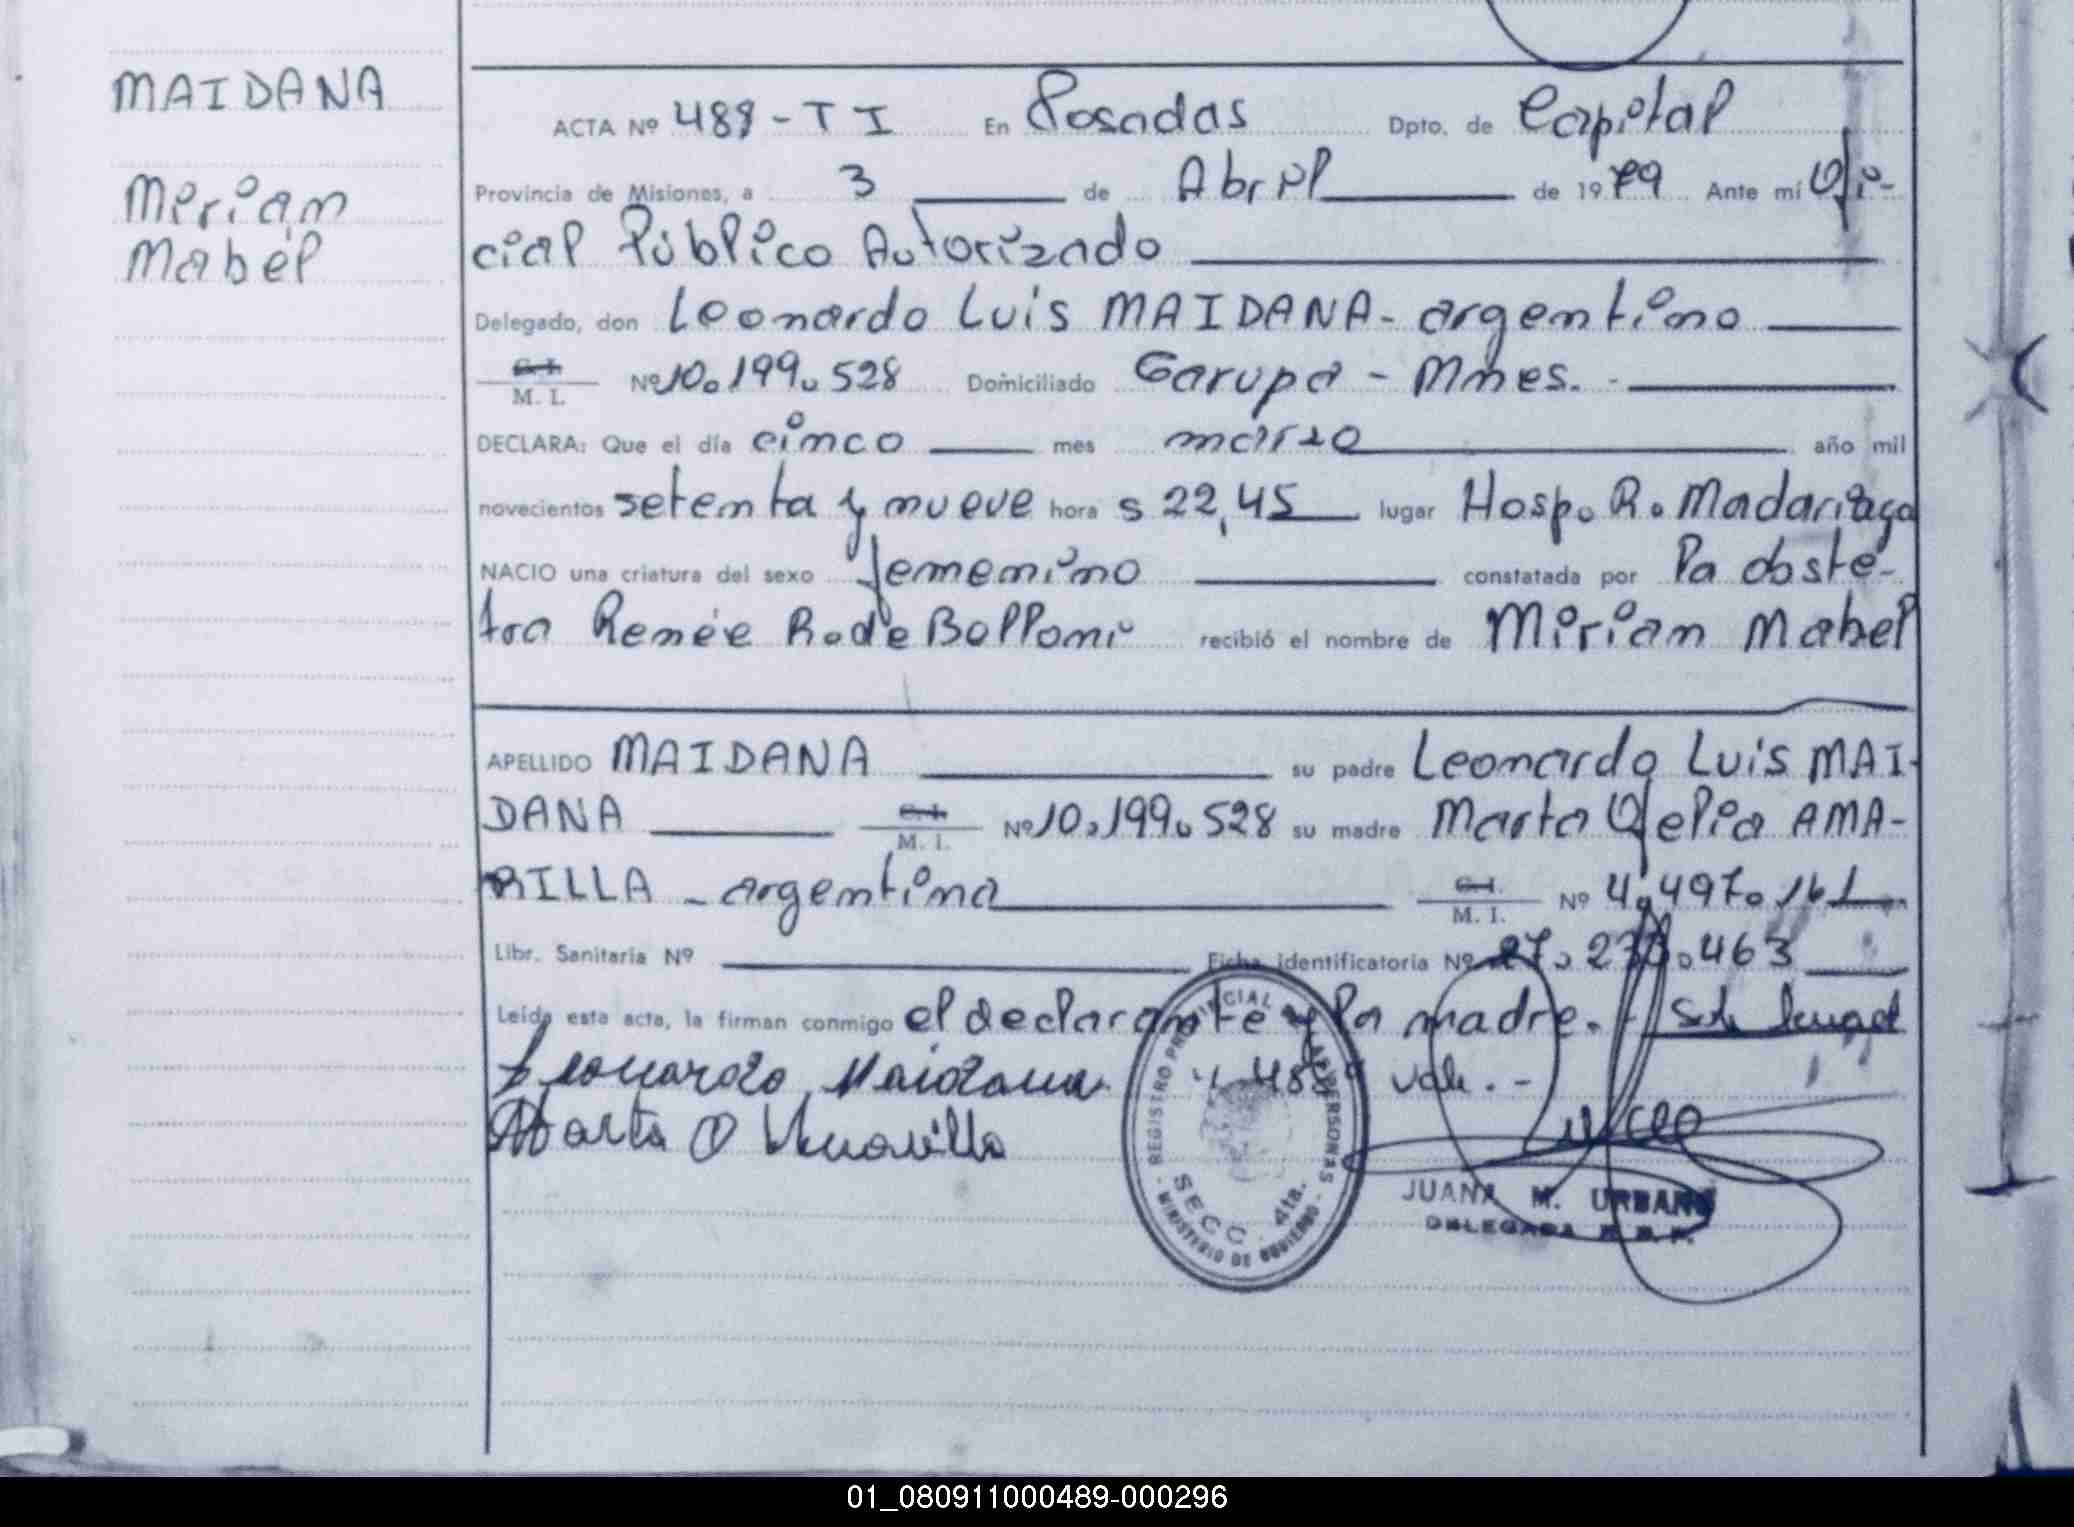 MAIDANA
Mirian
Mabel
ACTA Nº 489-TI En Posadas Dpto. de Capital
Provincia de Misiones, a 3 de Abril de 1979 Ante mí Ofi-
cial Público Autorizado
Delegado, don Leonardo Luis MAIDANA- argentino
C.I.
M. I. Nº 10.199.528 Domiciliado Garupa - Mnes. -
DECLARA: Que el día cinco mes marzo año mil
novecientos setenta y nueve hora s 22,45 lugar Hosp. R. Madariaga
NACIO una criatura del sexo femenino constatada por la obste-
tra Renée R. de Bolloni recibió el nombre de Mirian Mabel
APELLIDO MAIDANA su padre Leonardo Luis MAI-
DANA C.I.
M. I. Nº 10.199.528 su madre Marta Ofelia AMA-
RILLA - argentina C.I.
M. I. Nº 4.497.161
Libr. Sanitaria Nº Ficha identificatoria Nº 27.230.463
Leída esta acta, la firman conmigo el declarante y la madre. -
Leonardo Maidana vale. -
Marta O Amarilla
REGISTRO PROVINCIAL DE LAS PERSONAS
SECC. 4ta.
MINISTERIO DE GOBIERNO
JUANA M. URBANO
DELEGADA R. P. P.
01_080911000489-000296